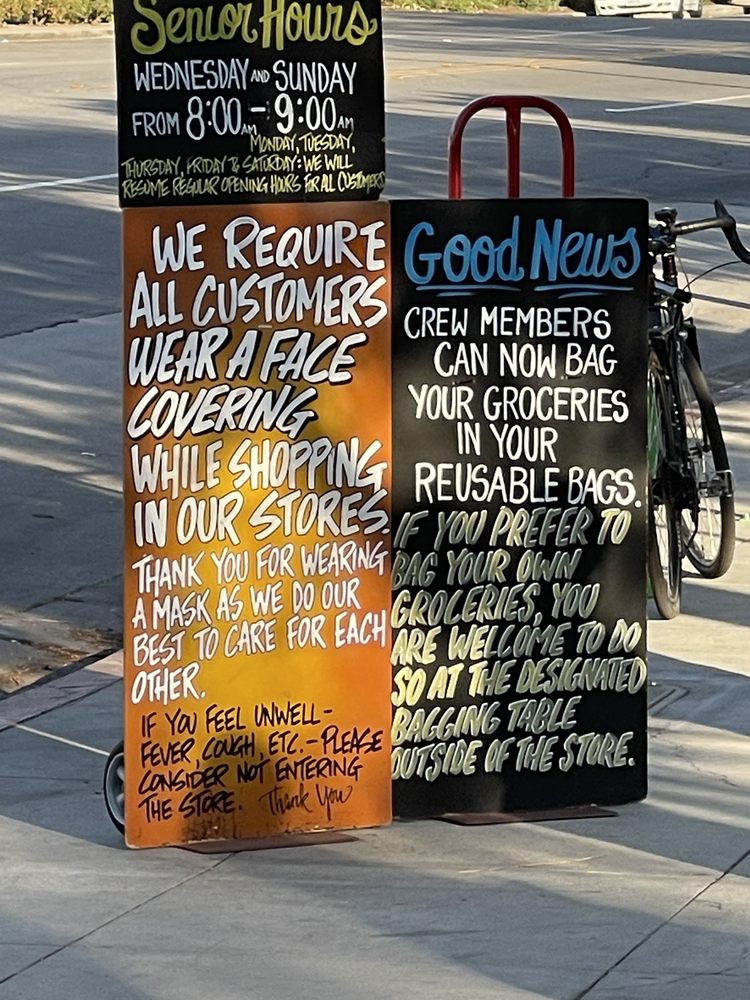 Senior Hours
WEDNESDAY AND SUNDAY
FROM 8:00AM - 9:00AM
MONDAY, TUESDAY,
THURSDAY, FRIDAY & SATURDAY: WE WILL
RESUME REGULAR OPENING HOURS FOR ALL CUSTOMERS
WE REQUIRE
ALL CUSTOMERS
WEAR A FACE
COVERING
WHILE SHOPPING
IN OUR STORES.
THANK YOU FOR WEARING
A MASK AS WE DO OUR
BEST TO CARE FOR EACH
OTHER.
IF YOU FEEL UNWELL -
FEVER, COUGH, ETC. - PLEASE
CONSIDER NOT ENTERING
THE STORE. Thank You
Good News
CREW MEMBERS
CAN NOW BAG
YOUR GROCERIES
IN YOUR
REUSABLE BAGS.
IF YOU PREFER TO
BAG YOUR OWN
GROCERIES, YOU
ARE WELCOME TO DO
SO AT THE DESIGNATED
BAGGING TABLE
OUTSIDE OF THE STORE.